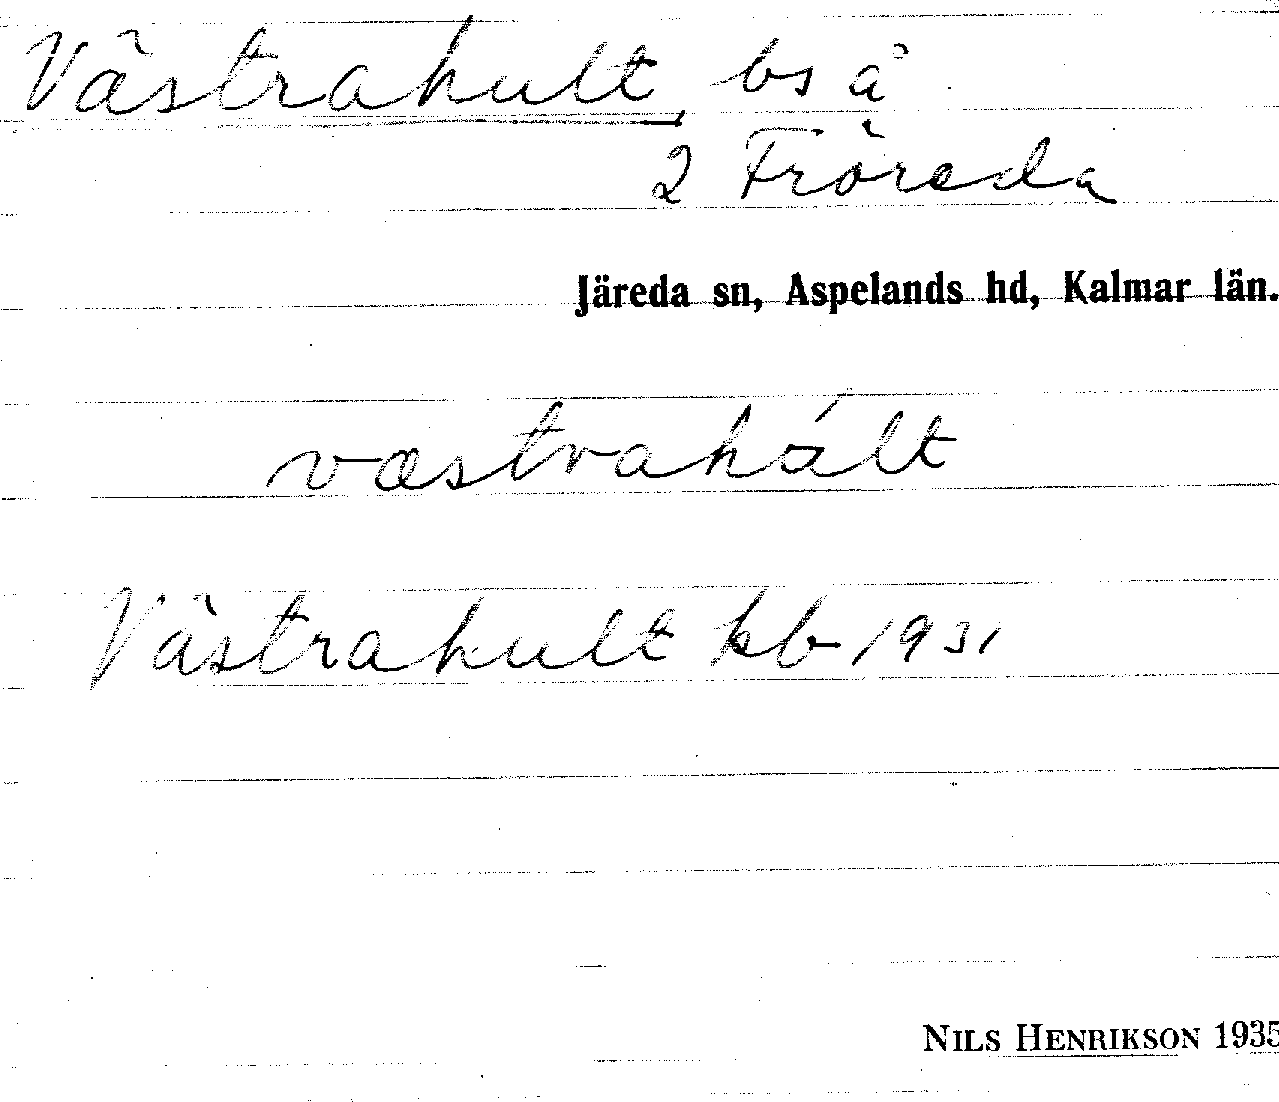 Västrahult, bs å
2 Fröreda
Järeda sn, Aspelands hd, Kalmar län.
væstrahált
Västrahult kb 1931
NILS HENRIKSON 1935